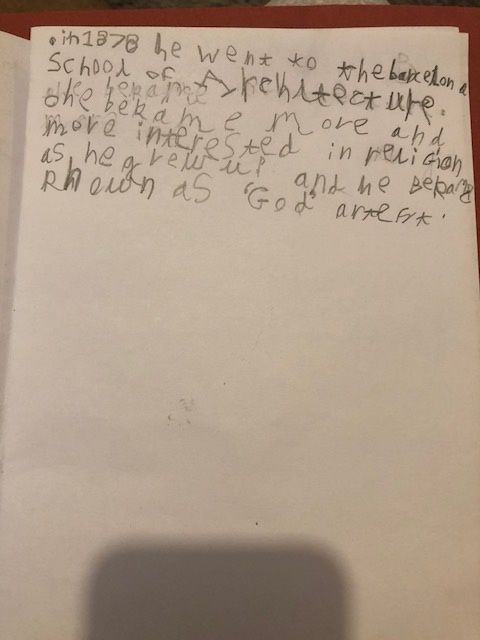 .in 1878 he went to the barcelona
School of Architecture.
ohe bekame more and
more interested in religion
as he grew up and he Bekame
known as 'God' artest.